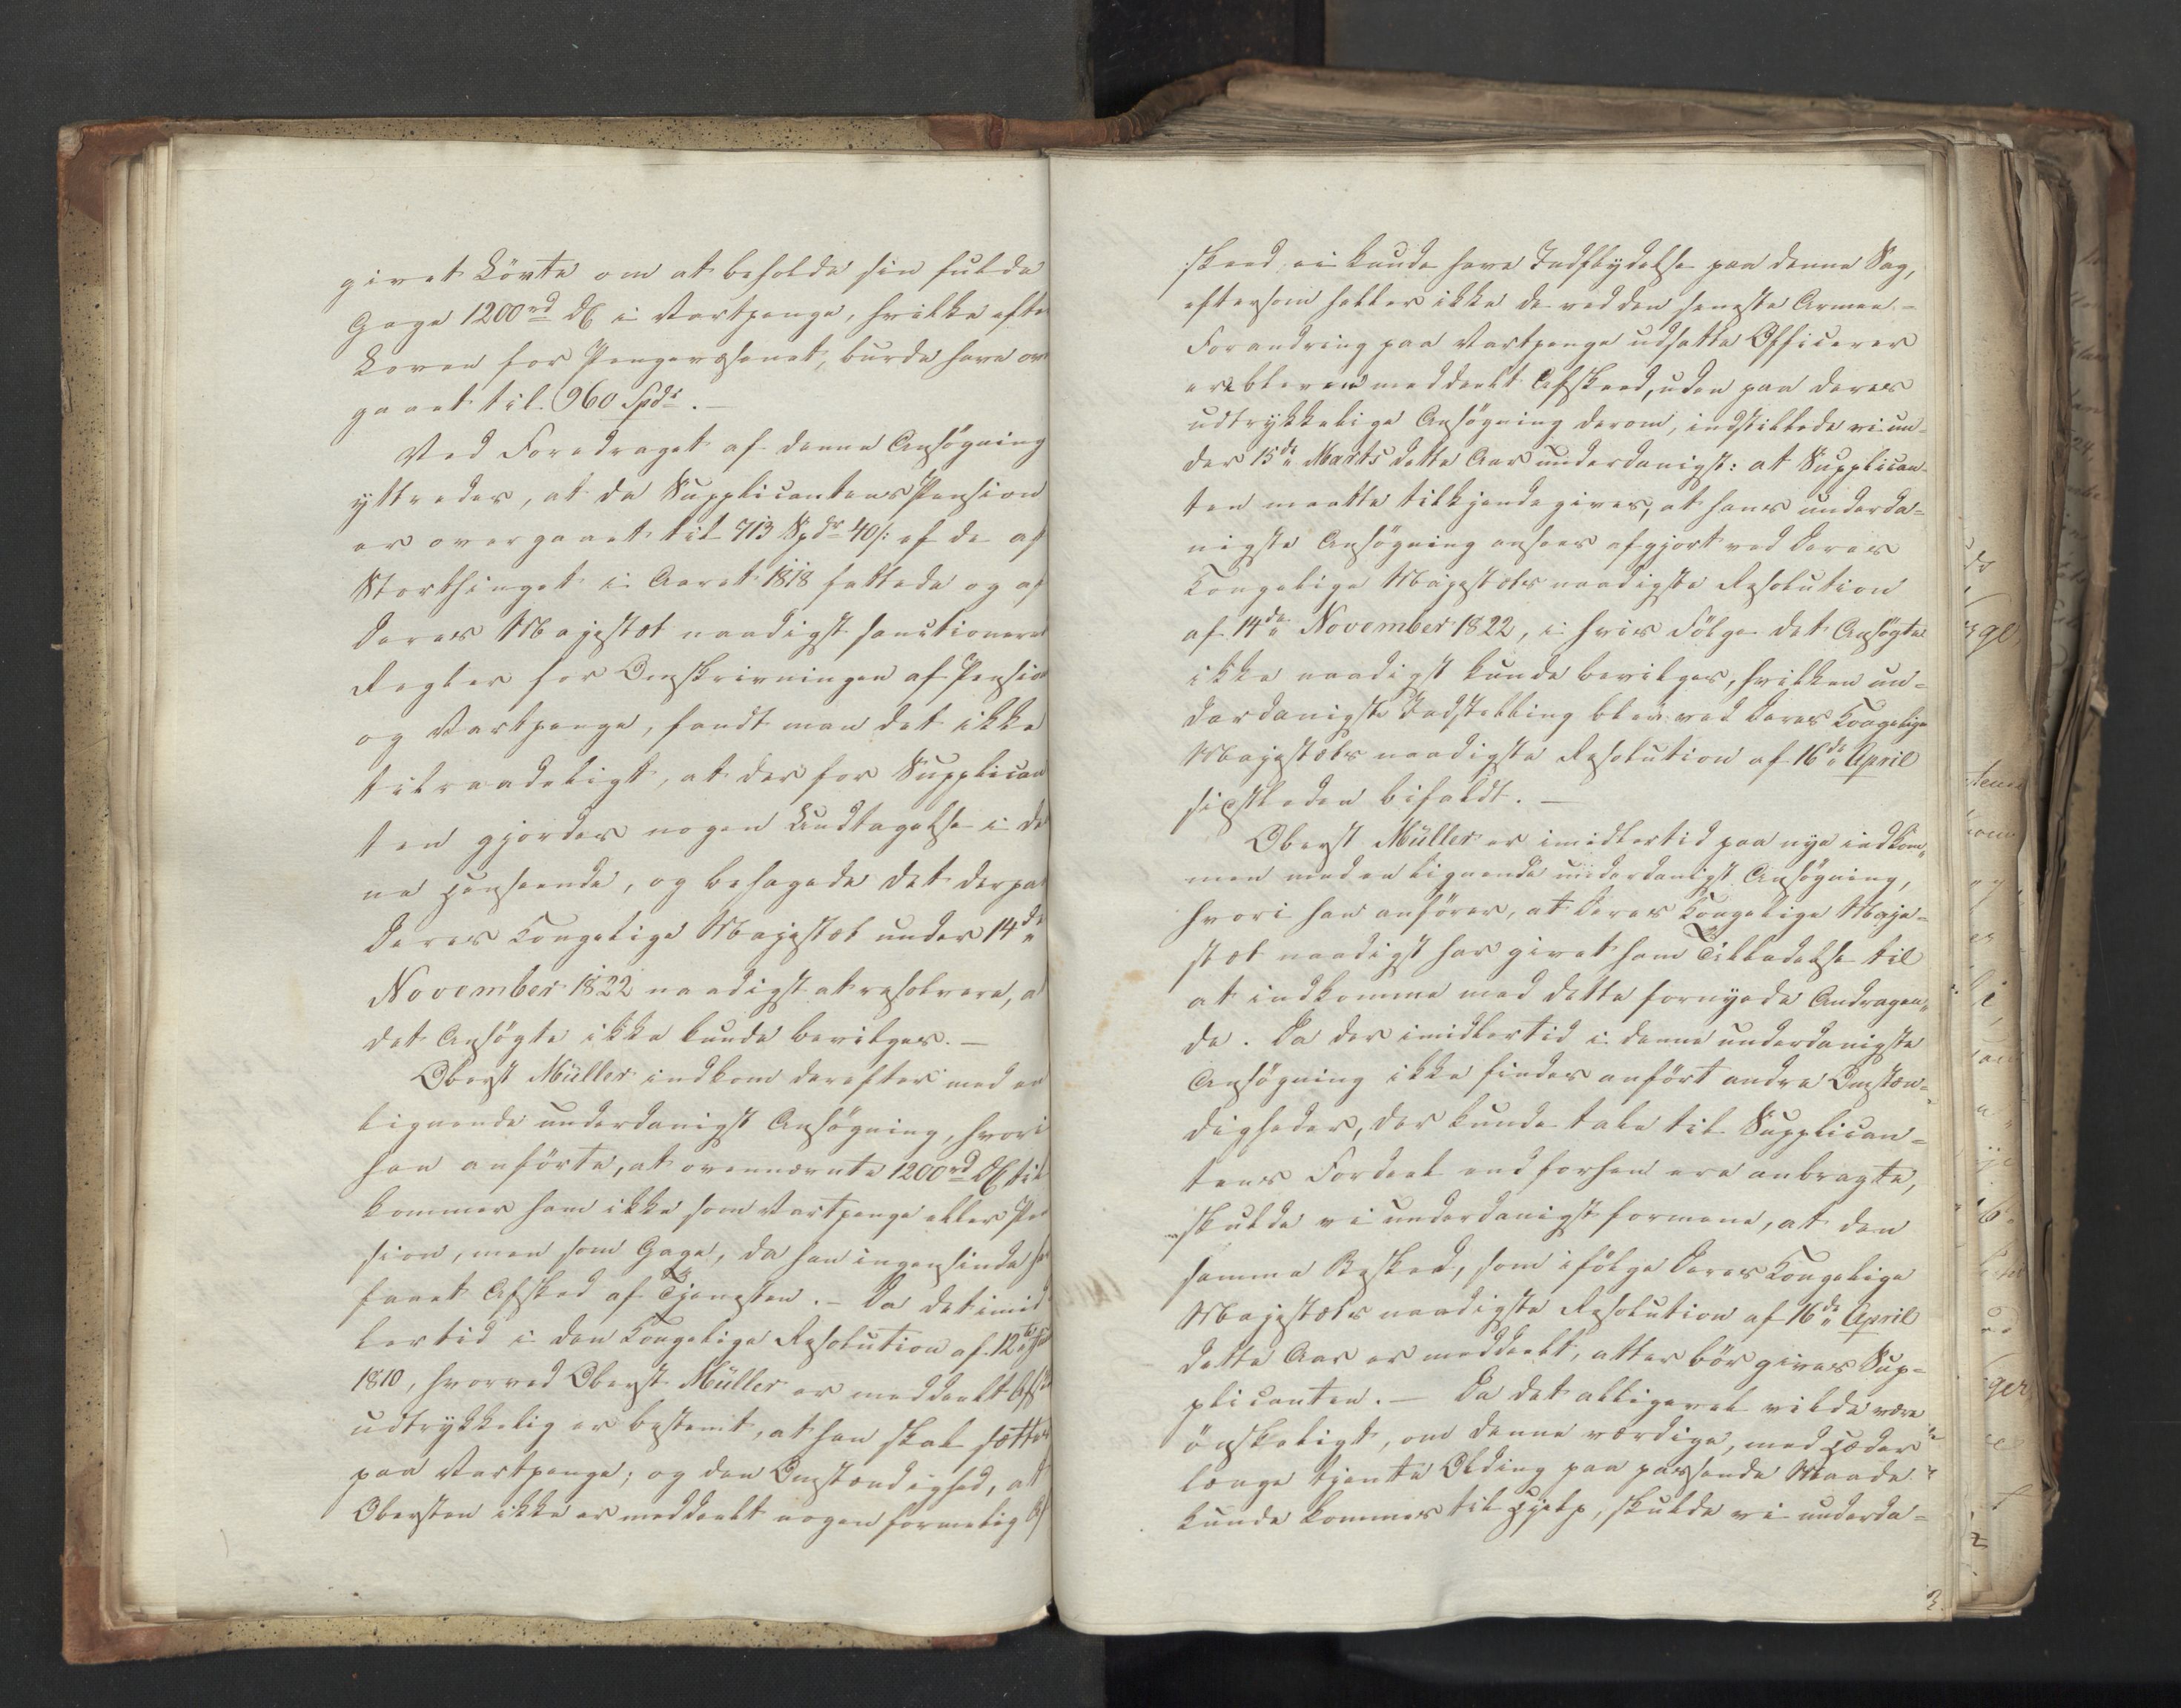 givet Løvte om at beholde sin fulde
Gage 1200 rd DC i Vartpenge, hvilke efter
Loven for Pengevæsenet, burde have over
gaaet til 960 Spdr. —
Ved Foredraget af denne Ansøgning
yttredes, at da Supplicantens Pension
er overgaaet til 713 Spdr 40/: ef de af
Storthinget i Aaret 1818 fattede og af
Deres Majestæt naadigst sanctionere
Regler for Omskrivningen af Pension
og Vartpenge, fandt man det ikke
tilraadeligt, at der for Supplican
ten gjordes nogen Undtagelse i den
ne Henseende, og behagede det derpaa
Deres Kongelige Majestæt under 14de
November 1822 naadigst at resolvere, at
det Ansøgte ikke kunde bevilges. —
Oberst Müller indkom derefter med en
lignende underdanigst Ansøgning, hvori
han anførte, at ovennævnte 1200 rd DC til
kommer ham ikke som Vartpenge eller Pen
sion, men som Gage, da han ingensinde har
faaet Afsked af Tjenesten. — Da det imid
lertid i den Kongelige Resolution af 12te
1810, hvorved Oberst Müller er meddeelt Afsk
udtrykkelig er bestemt, at han skal sættes
paa Vartpenge; og den Omstændighed, at
Obersten ikke er meddeelt nogen formelig Af
skeed ei kunde have Indflydelse paa denne Sag,
eftersom heller ikke de ved den seneste Armee-
Forandring paa Vartpenge udsatte Officerer
ere bleven meddeelt Afskeed, uden paa deres
udtrykkelige Ansøgning derom, indstillede vi un-
der 15de Marts dette Aar underdanigst: at Supplican-
ten maatte tilkjendegives, at hans underda=
nigste Ansøgning ansees afgjort ved Deres
Kongelige Majestæts naadigste Resolution
af 14de November 1822, i hvis Følge det Ansøgte
ikke naadigst kunde bevilges, hvilken un=
derdanigste Indstilling blev ved Deres Kongelige
Majestæts naadigste Resolution af 16de April
sidstleden bifaldt. —
Oberst Müller er imidlertid paa nye indkom„
men med en lignende underdanigst Ansøgning,
hvori han anfører, at Deres Kongelige Maje=
stæt naadigst har givet ham Tilladelse til
at indkomme med dette fornyede Andragen„
de. Da der imidlertid i denne underdanigste
Ansøgning ikke findes anført andre Omstæn=
digheder, der kunde tale til Supplican=
tens Fordeel end forhen ere anbragte,
skulde vi underdanigst formene, at den
samme Besked, som ifølge Deres Kongelige
Majestæts naadigste Resolution af 16de April
dette Aar er meddeelt, atter bør gives Sup=
plicanten. — Da det alligevel vilde være
ønskeligt, om denne værdige, med Hæder
længe tjente Olding paa passende Maade
kunde kommes til Hjelp, skulde vi underda=